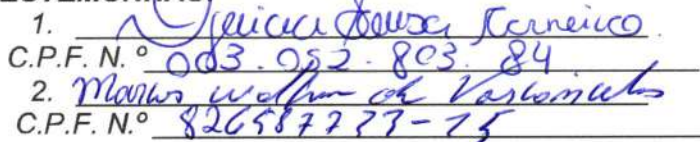 1. Sousa Carneiro
C.P.F. N.º 003.052.803.84
2. Marcos de Vasconcelos
C.P.F. N.º 826587733-15